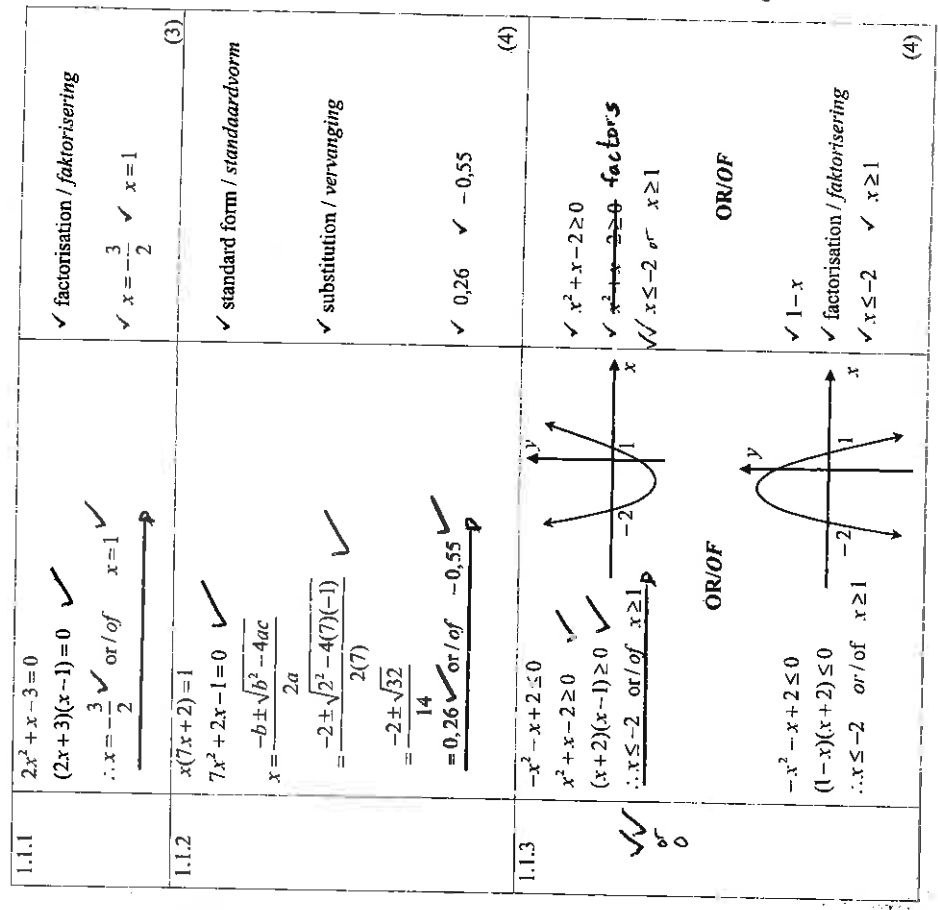 1.1.1
2x² + x − 3 = 0
(2x+3)(x−1) = 0 ✓
∴ x = −3/2 ✓ or/of x = 1 ✓
✓ factorisation / faktorisering
✓ x = −3/2 ✓ x = 1
(3)
1.1.2
x(7x+2) = 1
7x² + 2x − 1 = 0 ✓
x = (−b ± √(b² − 4ac))/2a
= (−2 ± √(2² − 4(7)(−1)))/2(7) ✓
= (−2 ± √32)/14
= 0,26 ✓ or/of −0,55 ✓
✓ standard form / standaardvorm
✓ substitution / vervanging
✓ 0,26 ✓ −0,55
(4)
1.1.3
✓✓
or
0
−x² − x + 2 ≤ 0
x² + x − 2 ≥ 0 ✓
(x+2)(x−1) ≥ 0 ✓
∴ x ≤ −2 or/of x ≥ 1
y
−2 1 x
✓ x² + x − 2 ≥ 0
✓ x² + x − 2 ≥ 0 factors
✓✓ x ≤ −2 or x ≥ 1
OR/OF
OR/OF
−x² − x + 2 ≤ 0
(1−x)(x+2) ≤ 0
∴ x ≤ −2 or/of x ≥ 1
y
−2 1 x
✓ 1 − x
✓ factorisation / faktorisering
✓ x ≤ −2 ✓ x ≥ 1
(4)